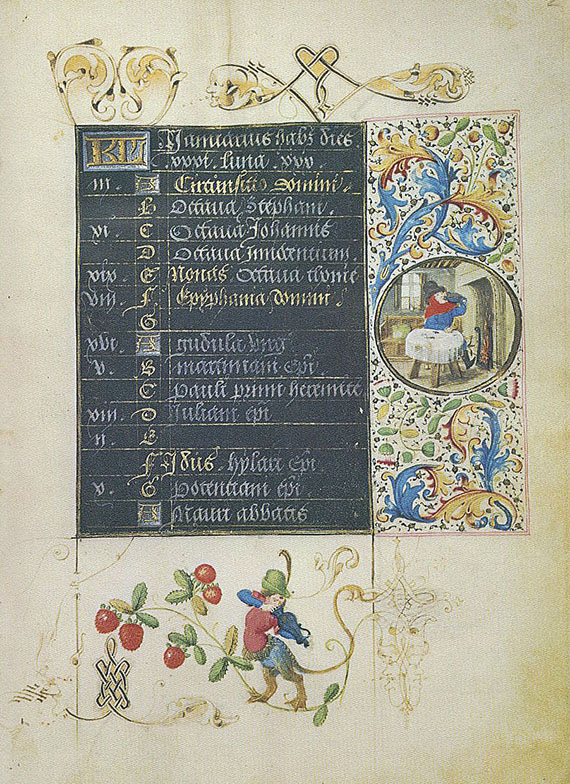 KL Januarius habet dies
xxxi. luna. xxx.
iii. A Circumsisio domini.
B Octaua Stephani.
xi. C Octaua Johannis
D Octaua Innocentium
xix. E Nonas Octaua thome
viii. F Epyphania domini.
G
xvi. A gudula virg
v. B marciani epi.
C Pauli primi heremite
xiii. D Juliani epi
ii. E
F Idus. hylari epi
x. G potentiani epi.
A Mauri abbatis